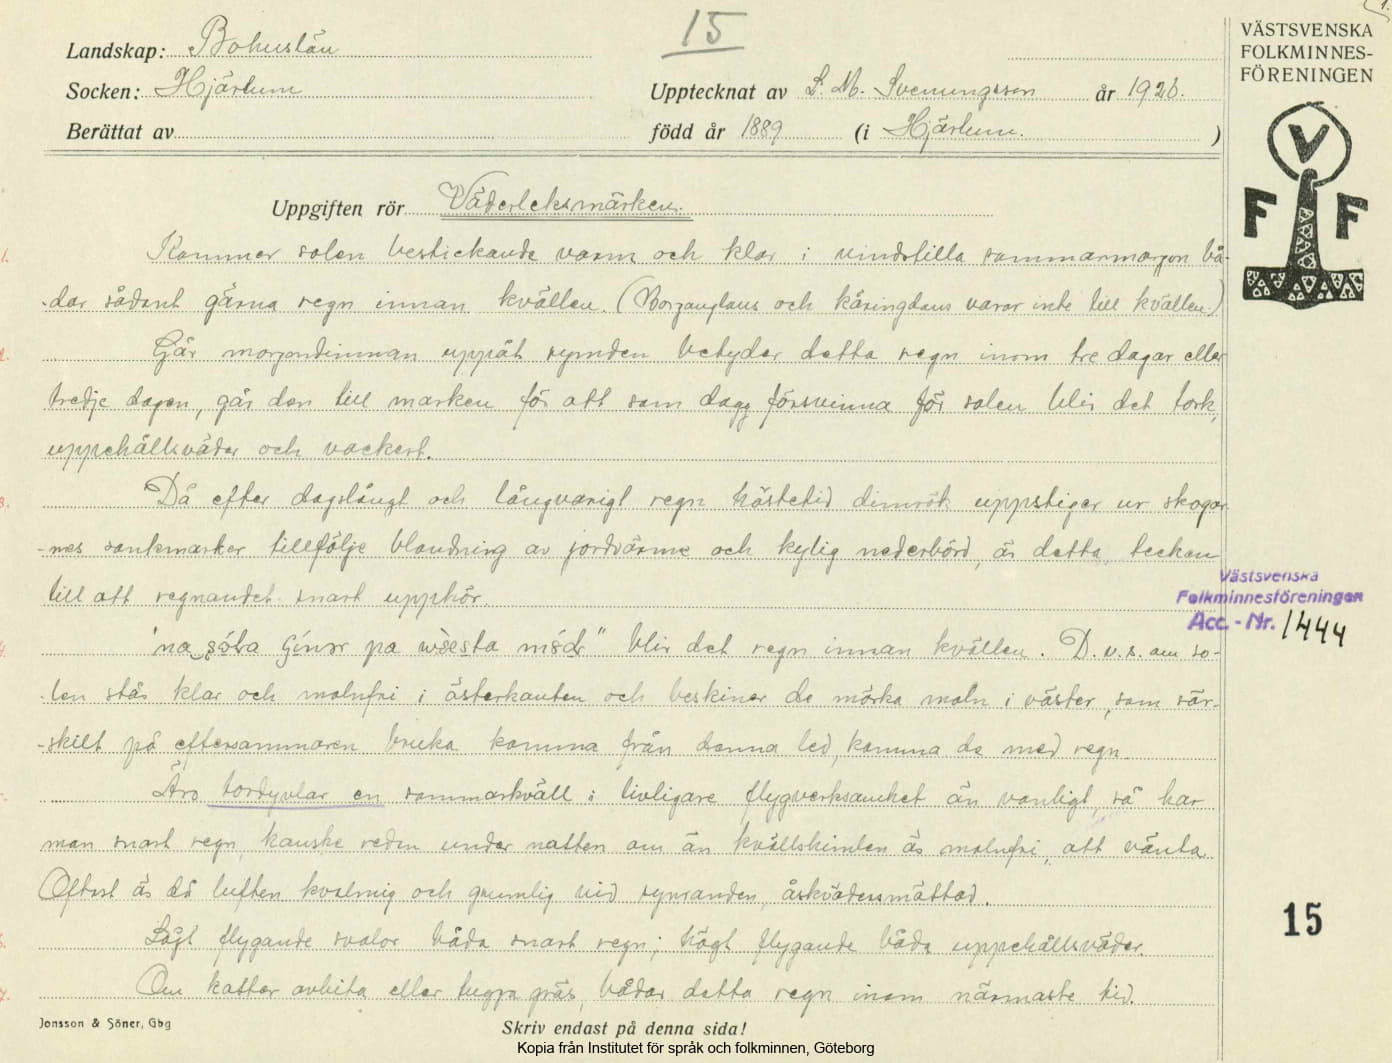 15
1.
Landskap: Bohuslän
Socken: Hjärtum
Berättat av
Upptecknat av L. M. Svenungsson år 1926.
född år 1889 (i Hjärtum. )
VÄSTSVENSKA
FOLKMINNES-
FÖRENINGEN
V
F F
Uppgiften rör Väderleksmärken.
1. Kommer solen bestickande varm och klar i vindstilla sommarmorgon bå-
dar sådant gärna regn innan kvällen. (Morganglans och käringdans varar inte till kvällen.)
2. Går morgondimman uppåt rymden betyder detta regn inom tre dagar eller
tredje dagen, går den till marken för att som dagg försvinna för solen blir det tork,
uppehållsväder och vackert.
3. Då efter dagslångt och långvarigt regn höstetid dimrök uppstiger ur skogar-
nes sankmarker tillfölje blandning av jordvärme och kylig nederbörd, är detta tecken
till att regnandet snart upphör.
4. blir det regn innan kvällen. D. v. s. om so-
len står klar och molnfri i österkanten och beskiner de mörka moln i väster, som sär-
skilt på eftersommaren bruka komma från denna led, komma de med regn.
Äro tordyvlar en sommarkväll i livligare flygverksamhet än vanligt, så har
man snart regn, kanske redan under natten om än kvällshimlen är molnfri, att vänta.
Oftast är då luften kvalmig och grumlig vid synranden, åskvädersmättad.
6. Lågt flygande svalor båda snart regn; högt flygande båda uppehållsväder.
7. Om katter avbita eller tugga gräs, bådar detta regn inom närmaste tid.
Västsvenska
Folkminnesföreningen
Acc. - Nr. 1444
15
Jonsson & Söner, Gbg
Skriv endast på denna sida!
Kopia från Institutet för språk och folkminnen, Göteborg